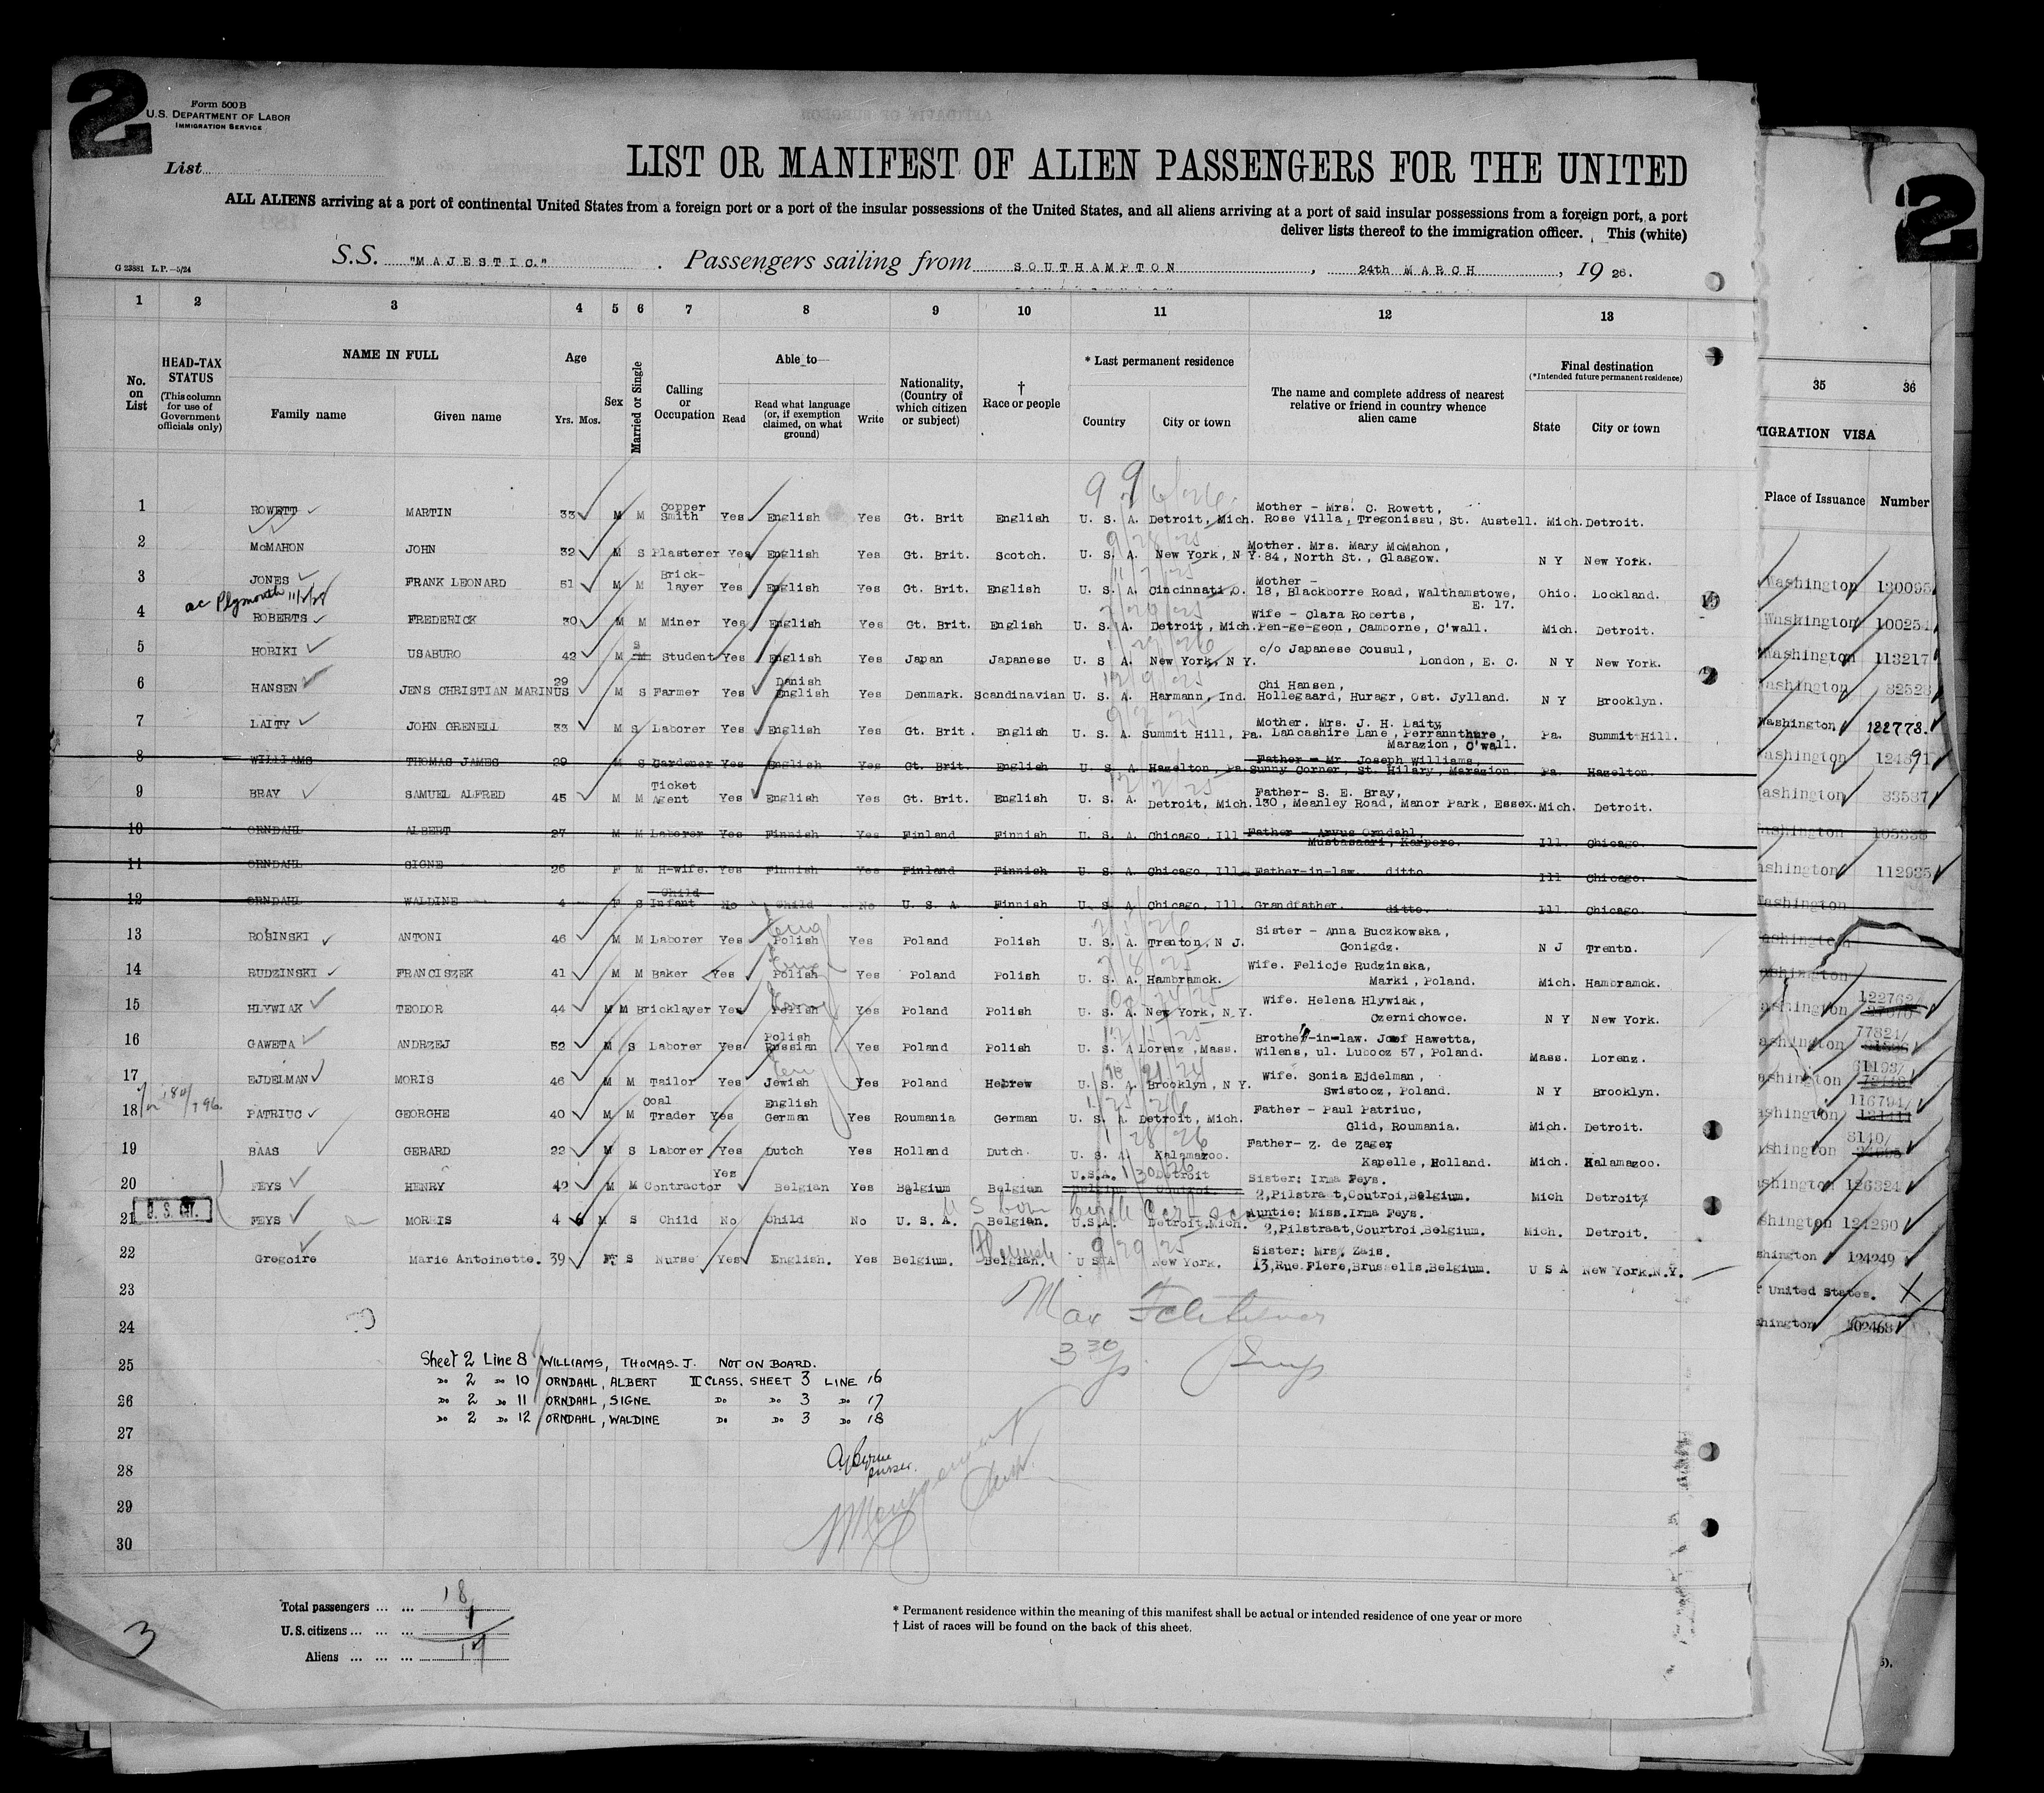 2
Form 500B
U.S. DEPARTMENT OF LABOR
IMMIGRATION SERVICE
List
LIST OR MANIFEST OF ALIEN PASSENGERS FOR THE UNITED
ALL ALIENS arriving at a port of continental United States from a foreign port or a port of the insular possessions of the United States, and all aliens arriving at a port of said insular possessions from a foreign port, a port
deliver lists thereof to the immigration officer. This (white)
2
G 23881 L.P.—5/24
S.S. "MAJESTIC." Passengers sailing from SOUTHAMPTON, 24th MARCH, 1926.
1 2 3 4 5 6 7 8 9 10 11 12 13
35 36
No. on List
HEAD-TAX STATUS (This column for use of Government officials only)
NAME IN FULL
Family name Given name
Age
Yrs. Mos.
Sex
Married or Single
Calling or Occupation
Able to—
Read Read what language (or, if exemption claimed, on what ground) Write
Nationality, (Country of which citizen or subject)
† Race or people
* Last permanent residence
Country City or town
The name and complete address of nearest relative or friend in country whence alien came
Final destination
(*Intended future permanent residence)
State City or town
MIGRATION VISA
Place of Issuance Number
9 9/6/26
1 ROWETT MARTIN 33 M M Copper Smith Yes English Yes Gt. Brit English U. S. A. Detroit, Mich. Mother - Mrs. C. Rowett, Rose Villa, Tregonissu, St. Austell. Mich. Detroit.
2 McMAHON JOHN 32 M S Plasterer Yes English Yes Gt. Brit. Scotch. U. S. A. New York, N Y. Mother. Mrs. Mary McMahon, 84, North St., Glasgow. N Y New York.
3 JONES FRANK LEONARD 51 M M Brick-layer Yes English Yes Gt. Brit. English U. S. A. Cincinnati, O. Mother - 18, Blackborre Road, Walthamstowe, E. 17. Ohio. Lockland.
ac Plymouth
4 ROBERTS FREDERICK 30 M M Miner Yes English Yes Gt. Brit. English U. S. A. Detroit, Mich. Wife - Clara Roberts, Pen-ge-geon, Camborne, C'wall. Mich. Detroit.
5 HORIKI USABURO 42 M S M Student Yes English Yes Japan Japanese U. S A. New York, N Y. c/o Japanese Cousul, London, E. C. N Y New York.
6 HANSEN JENS CHRISTIAN MARINUS 29 M S Farmer Yes Danish English Yes Denmark. Scandinavian U. S. A. Harmann, Ind. Chi Hansen, Hollegaard, Huragr, Ost. Jylland. N Y Brooklyn.
7 LAITY JOHN GRENELL 33 M S Laborer Yes English Yes Gt. Brit. English U. S. A. Summit Hill, Pa. Mother. Mrs. J. H. Laity Lancashire Lane, Perrannthure, Marazion, C'wall. Pa. Summit Hill.
8 WILLIAMS THOMAS JAMES 29 M S Gardener Yes English Yes Gt. Brit. English U. S. A. Hazelton, Pa Father - Mr. Joseph Williams, Sunny Corner, St. Hilary, Marazion. Pa. Hazelton.
9 BRAY SAMUEL ALFRED 45 M M Ticket Agent Yes English Yes Gt. Brit. English U. S. A. Detroit, Mich. Father- S. E. Bray, 130, Meanley Road, Manor Park, Essex. Mich. Detroit.
10 ORNDAHL ALBERT 27 M M Laborer Yes Finnish Yes Finland Finnish U. S. A. Chicago, Ill Father - Arvus Orndahl, Mustasaari, Karpero. Ill. Chicago.
11 ORNDAHL SIGNE 26 F M H-wife. Yes Finnish Yes Finland Finnish U. S. A. Chicago, Ill. Father-in-law. ditto Ill Chicago.
12 ORNDAHL WALDINE 4 F S Child Infant No Child No U. S. A Finnish U. S. A. Chicago, Ill. Grandfather. ditto. Ill Chicago.
13 ROSINSKI ANTONI 46 M M Laborer Yes Polish Yes Poland Polish U. S. A. Trenton, N J. Sister - Anna Buczkowska, Gonigdz. N J Trentn.
14 RUDZINSKI FRANCISZEK 41 M M Baker Yes Polish Yes Poland Polish U. S. A. Hambramck. Wife. Felicje Rudzinska, Marki, Poland. Mich. Hambramck.
15 HLYWIAK TEODOR 44 M M Bricklayer Yes Polish Yes Poland Polish U. S. A. New York, N.Y. Wife. Helena Hlywiak, Czernichowce. N Y New York.
16 GAWETA ANDRZEJ 32 M S Laborer Yes Polish Russian Yes Poland Polish U. S. A Lorenz, Mass. Brother-in-law. Josef Hawetta, Wilens, ul. Lubocz 57, Poland. Mass. Lorenz.
17 EJDELMAN MORIS 46 M M Tailor Yes Jewish Yes Poland Hebrew U. S. A. Brooklyn, N Y. Wife. Sonia Ejdelman, Swistocz, Poland. N Y Brooklyn.
18 PATRIUC GEORGHE 40 M M Coal Trader Yes English German Yes Roumania German U. S. A. Detroit, Mich. Father - Paul Patriuc, Glid, Roumania. Mich. Detroit.
19 BAAS GERARD 22 M S Laborer Yes Dutch Yes Holland Dutch. U. S. A. Kalamazoo. Father- Z. de Zager, Kapelle, Holland. Mich. Kalamazoo.
20 FEYS HENRY 42 M M Contractor Yes Belgian Yes Belgium Belgian U.S.A. Detroit Sister: Irma Feys. 2, Pilstraat, Coutroi, Belgium. Mich Detroit,
U. S. CIT.
21 FEYS MORRIS 4 6 M S Child No Child No U. S. A. Belgian. U.S.A. Detroit, Mich. Auntie: Miss. Irma Feys. 2, Pilstraat, Courtroi, Belgium. Mich. Detroit.
U S born birth Cert seen
22 Gregoire Marie Antoinette. 39 F S Nurse Yes English. Yes Belgium. Flemish Belgian. U S A New York. Sister: Mrs. Zais. 13, Rue Flere, Brussells, Belgium. U S A New York. N.Y.
23
24
25
26
27
28
29
30
3 30
Sheet 2 Line 8 WILLIAMS, THOMAS-J. NOT ON BOARD.
Do 2 Do 10 ORNDAHL, ALBERT II CLASS. SHEET 3 LINE 16
Do 2 Do 11 ORNDAHL, SIGNE Do Do 3 Do 17
Do 2 Do 12 ORNDAHL, WALDINE Do Do 3 Do 18
Purser.
Washington 130095
Washington 100254
Washington 113217
Washington 82528
Washington 122773.
Washington 124391
ashington 83587
ashington 105338
ashington 112985
Washington
ashington
ashington
ashington 122762/
ashington 77824/
ashington 61193/
ashington 116794/
ashington 8140/
ashington 126324
shington 124290
shington 124249
f United States. X
shington 402468
Total passengers ... ... 18
U.S. citizens ... ... ... 1
Aliens ... ... ... 17
3
* Permanent residence within the meaning of this manifest shall be actual or intended residence of one year or more
† List of races will be found on the back of this sheet.